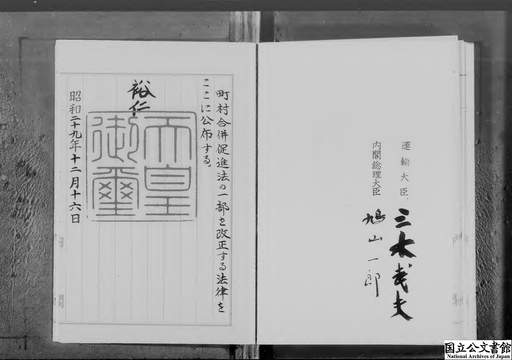 運輸大臣
三木武夫
内閣総理大臣
鳩山一郎
町村合併促進法の一部を改正する法律を
ここに公布する。
裕仁
天皇
御璽
昭和二十九年十二月十六日
国立公文書館
National Archives of Japan